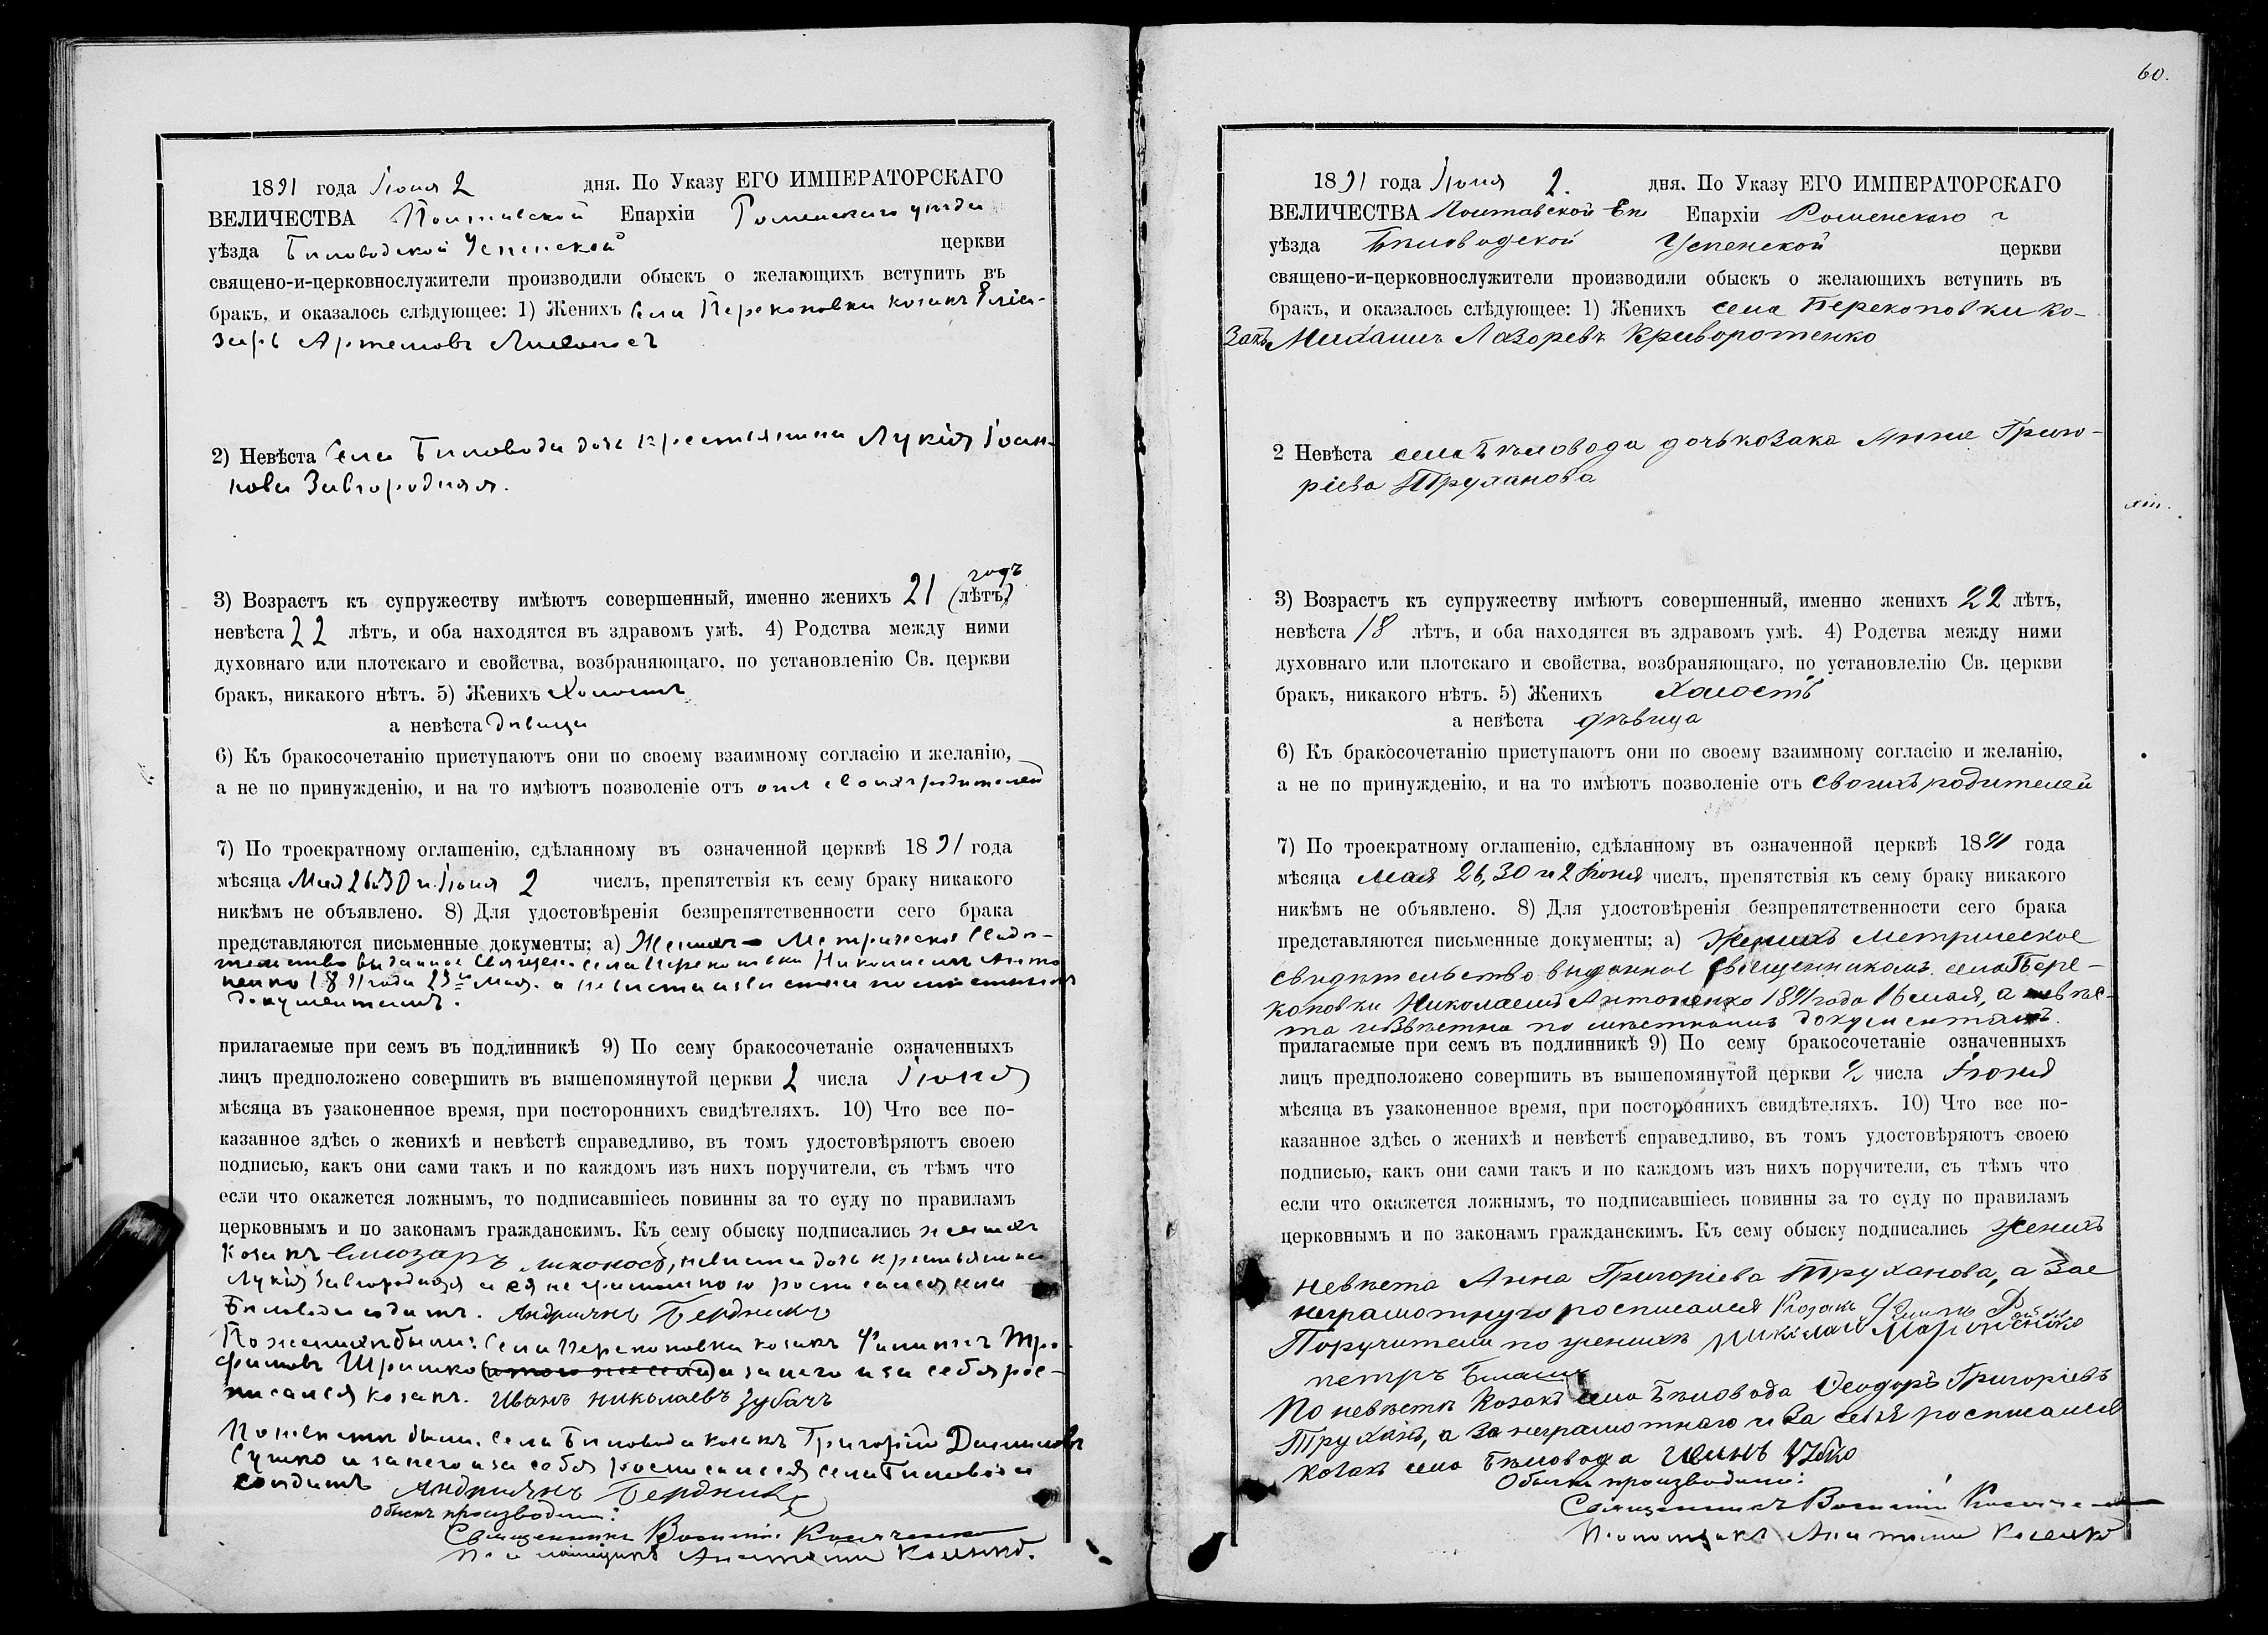 1891 года Іюня 2 дня. По Указу ЕГО ИМПЕРАТОРСКАГО
ВЕЛИЧЕСТВА Полтавской Епархіи Роменскаго уѣзда
уѣзда Бѣловодской Успенской церкви
священо-и-церковнослужители производили обыскъ о желающихъ вступить въ
бракъ, и оказалось слѣдующее: 1) Женихъ села Перекоповки козакъ Еліа-
заръ Артемовъ Лихоносъ
2) Невѣста села Бѣловода дочь крестьянина Лукія Іоан-
нова Завгородняя.
годъ
3) Возрастъ къ супружеству имѣютъ совершенный, именно женихъ 21 (лѣтъ)
невѣста 22 лѣтъ, и оба находятся въ здравомъ умѣ. 4) Родства между ними
духовнаго или плотскаго и свойства, возбраняющаго, по установленію Св. церкви
бракъ, никакого нѣтъ. 5) Женихъ холостъ
а невѣста дѣвица
6) Къ бракосочетанію приступаютъ они по своему взаимному согласію и желанію,
а не по принужденію, и на то имѣютъ позволеніе отъ своихъ родителей
7) По троекратному оглашенію, сдѣланному въ означенной церквѣ 1891 года
мѣсяца Мая 26, 30 и Іюня 2 числъ, препятствія къ сему браку никакого
никѣмъ не объявлено. 8) Для удостовѣренія безпрепятственности сего брака
представляются письменные документы; а) Женихъ Метрическое свидѣ-
тельство выданное священ. села Перекоповки Николаемъ Анто
ненко 1891 года 23 Мая. а невѣста извѣстна по мѣстнымъ
документамъ.
прилагаемые при семъ въ подлинникѣ 9) По сему бракосочетаніе означенныхъ
лицъ предположено совершить въ вышепомянутой церкви 2 числа Іюня
мѣсяца въ узаконенное время, при постороннихъ свидѣтеляхъ. 10) Что все по-
казанное здѣсь о женихѣ и невѣстѣ справедливо, въ томъ удостовѣряютъ своею
подписью, какъ они сами такъ и по каждомъ изъ нихъ поручители, съ тѣмъ что
если что окажется ложнымъ, то подписавшіесь повинны за то суду по правиламъ
церковнымъ и по законамъ гражданскимъ. Къ сему обыску подписались женихъ
козакъ Елизаръ Лихоносъ, невѣста дочь крестьянина
Лукія Завгородняя а за неграмотную росписался села
Бѣловода солдатъ. Андріянъ Бердникъ
По женихѣ были: села Перекоповки козакъ Филиппъ Тро-
фимовъ Шришко (а того же села) а за него и за себя рос-
писался козакъ. Иванъ Николаевъ Зубачъ
По невѣстѣ были. села Бѣловода козакъ Григорій Даниловъ
Сушко и за него и за себя росписался села Бѣловода
солдатъ Андріянъ Бердникъ
Обыскъ производили:
Священникъ Василій
Псаломщикъ Коленко.
60.
1891 года Іюня 2. дня. По Указу ЕГО ИМПЕРАТОРСКАГО
ВЕЛИЧЕСТВА Полтавской Еп Епархіи Роменскаго
уѣзда Бѣловодской Успенской церкви
священо-и-церковнослужители производили обыскъ о желающихъ вступить въ
бракъ, и оказалось слѣдующее: 1) Женихъ села Перекоповки ко-
закъ Михаилъ Лазоревъ Криворотенко
2 Невѣста села Бѣловода дочь козака Анна Григо-
ріева Труханова
3) Возрастъ къ супружеству имѣютъ совершенный, именно женихъ 22 лѣтъ,
невѣста 18 лѣтъ, и оба находятся въ здравомъ умѣ. 4) Родства между ними
духовнаго или плотскаго и свойства, возбраняющаго, по установлелію Св. церкви
бракъ, никакого нѣтъ. 5) Женихъ Халостъ
а невѣста дѣвица
6) Къ бракосочетанію приступаютъ они по своему взаимному согласію и желанію,
а не по принужденію, и на то имѣютъ позволеніе отъ своихъ родителей
7) По троекратному оглашенію, сдѣланному въ означенной церквѣ 1891 года
мѣсяца Мая 26, 30 и 2 Іюня числъ, препятствія къ сему браку никакого
никѣмъ не объявлено. 8) Для удостовѣренія безпрепятственности сего брака
представляются письменные документы; а) Женихъ Метрическое
свидѣтельство выданное священникомъ села Пере-
коповки Николаемъ Антоненко 1891 года 16 мая, а невѣс-
та извѣстна по мѣстнымъ документамъ.
прилагаемые при семъ въ подлинникѣ 9) По сему бракосочетаніе означенныхъ
лицъ предположено совершить въ вышепомянутой церкви 2 числа Іюня
мѣсяца въ узаконенное время, при постороннихъ свидѣтеляхъ. 10) Что все по-
казанное здѣсь о женихѣ и невѣстѣ справедливо, въ томъ удостовѣряютъ своею
подписью, какъ они сами такъ и по каждомъ изъ нихъ поручители, съ тѣмъ что
если что окажется ложнымъ, то подписавшіесь повинны за то суду по правиламъ
церковнымъ и по законамъ гражданскимъ. Къ сему обыску подписались женихъ
невѣста Анна Григоріева Труханова, а за ее
неграмотную росписался Козакъ
Поручители по женихѣ Николай
петръ Билашъ
По невѣстѣ Козакъ села Бѣловода Ѳеодоръ Григоріевъ
Труханъ, а за неграмотнаго и за себя росписался
козакъ села Бѣловода
Обыскъ производили:
Священникъ Василій
Псаломщикъ Коленко